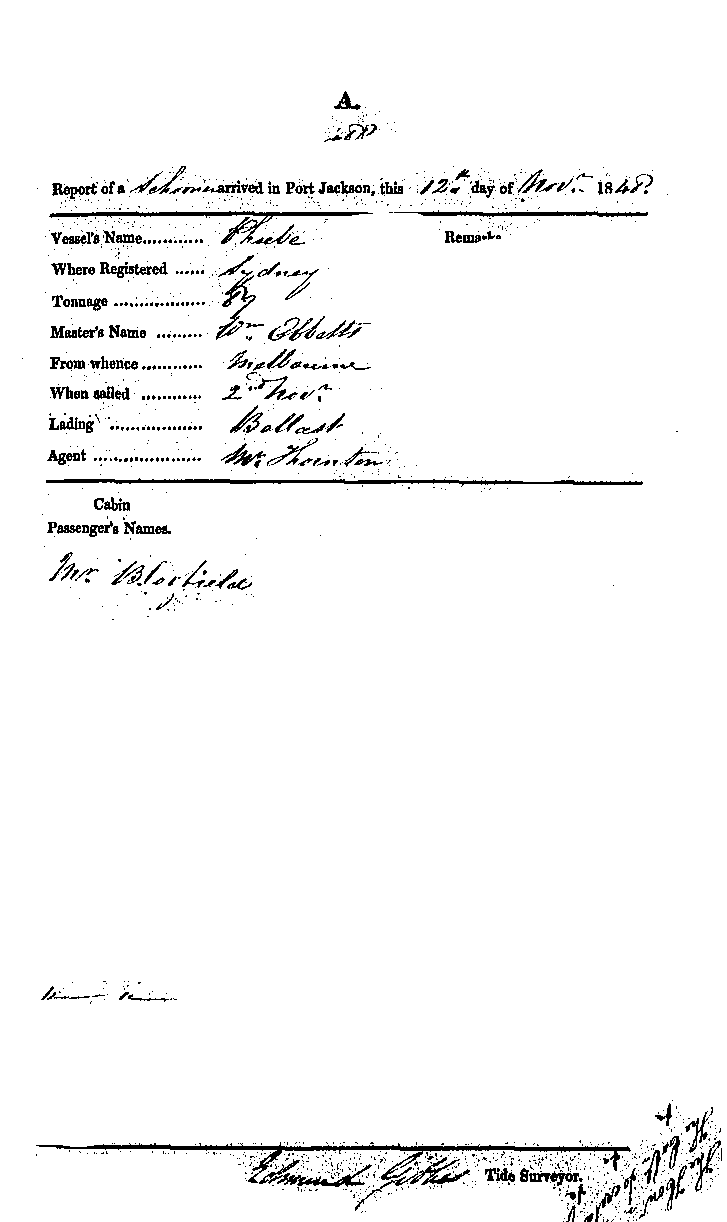 A.
Report of a Schooner arrived in Port Jackson, this 12th day of Novr. 1848.
Vessel's Name............ Phoebe
Remarks.
Where Registered ...... Sydney
Tonnage .................. 
Master's Name ......... Wm. Ebbatts
From whence............ Melbourne
When sailed ............ 2nd Novr.
Lading .................. Ballast
Agent ..................... Mr. Thornton
Cabin
Passenger's Names.
Mr
Edmund Gibbes Tide Surveyor.